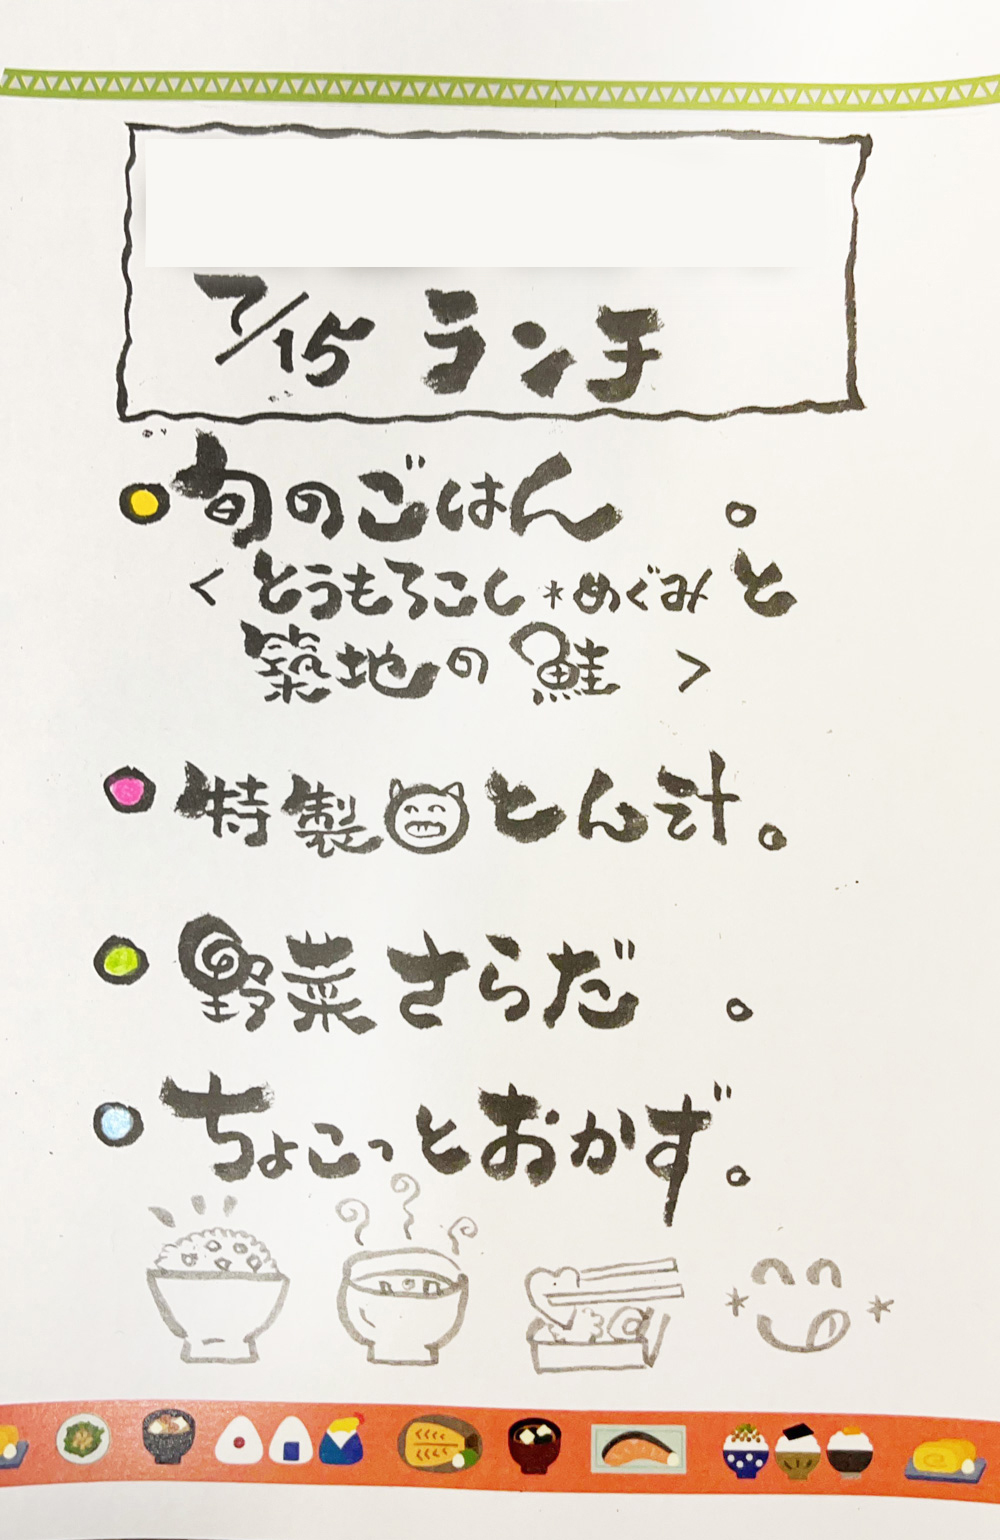 7/15 ランチ
旬のごはん。
<とうもろこし*めぐみと
築地の鮭>
特製とん汁。
野菜さらだ。
ちょこっとおかず。